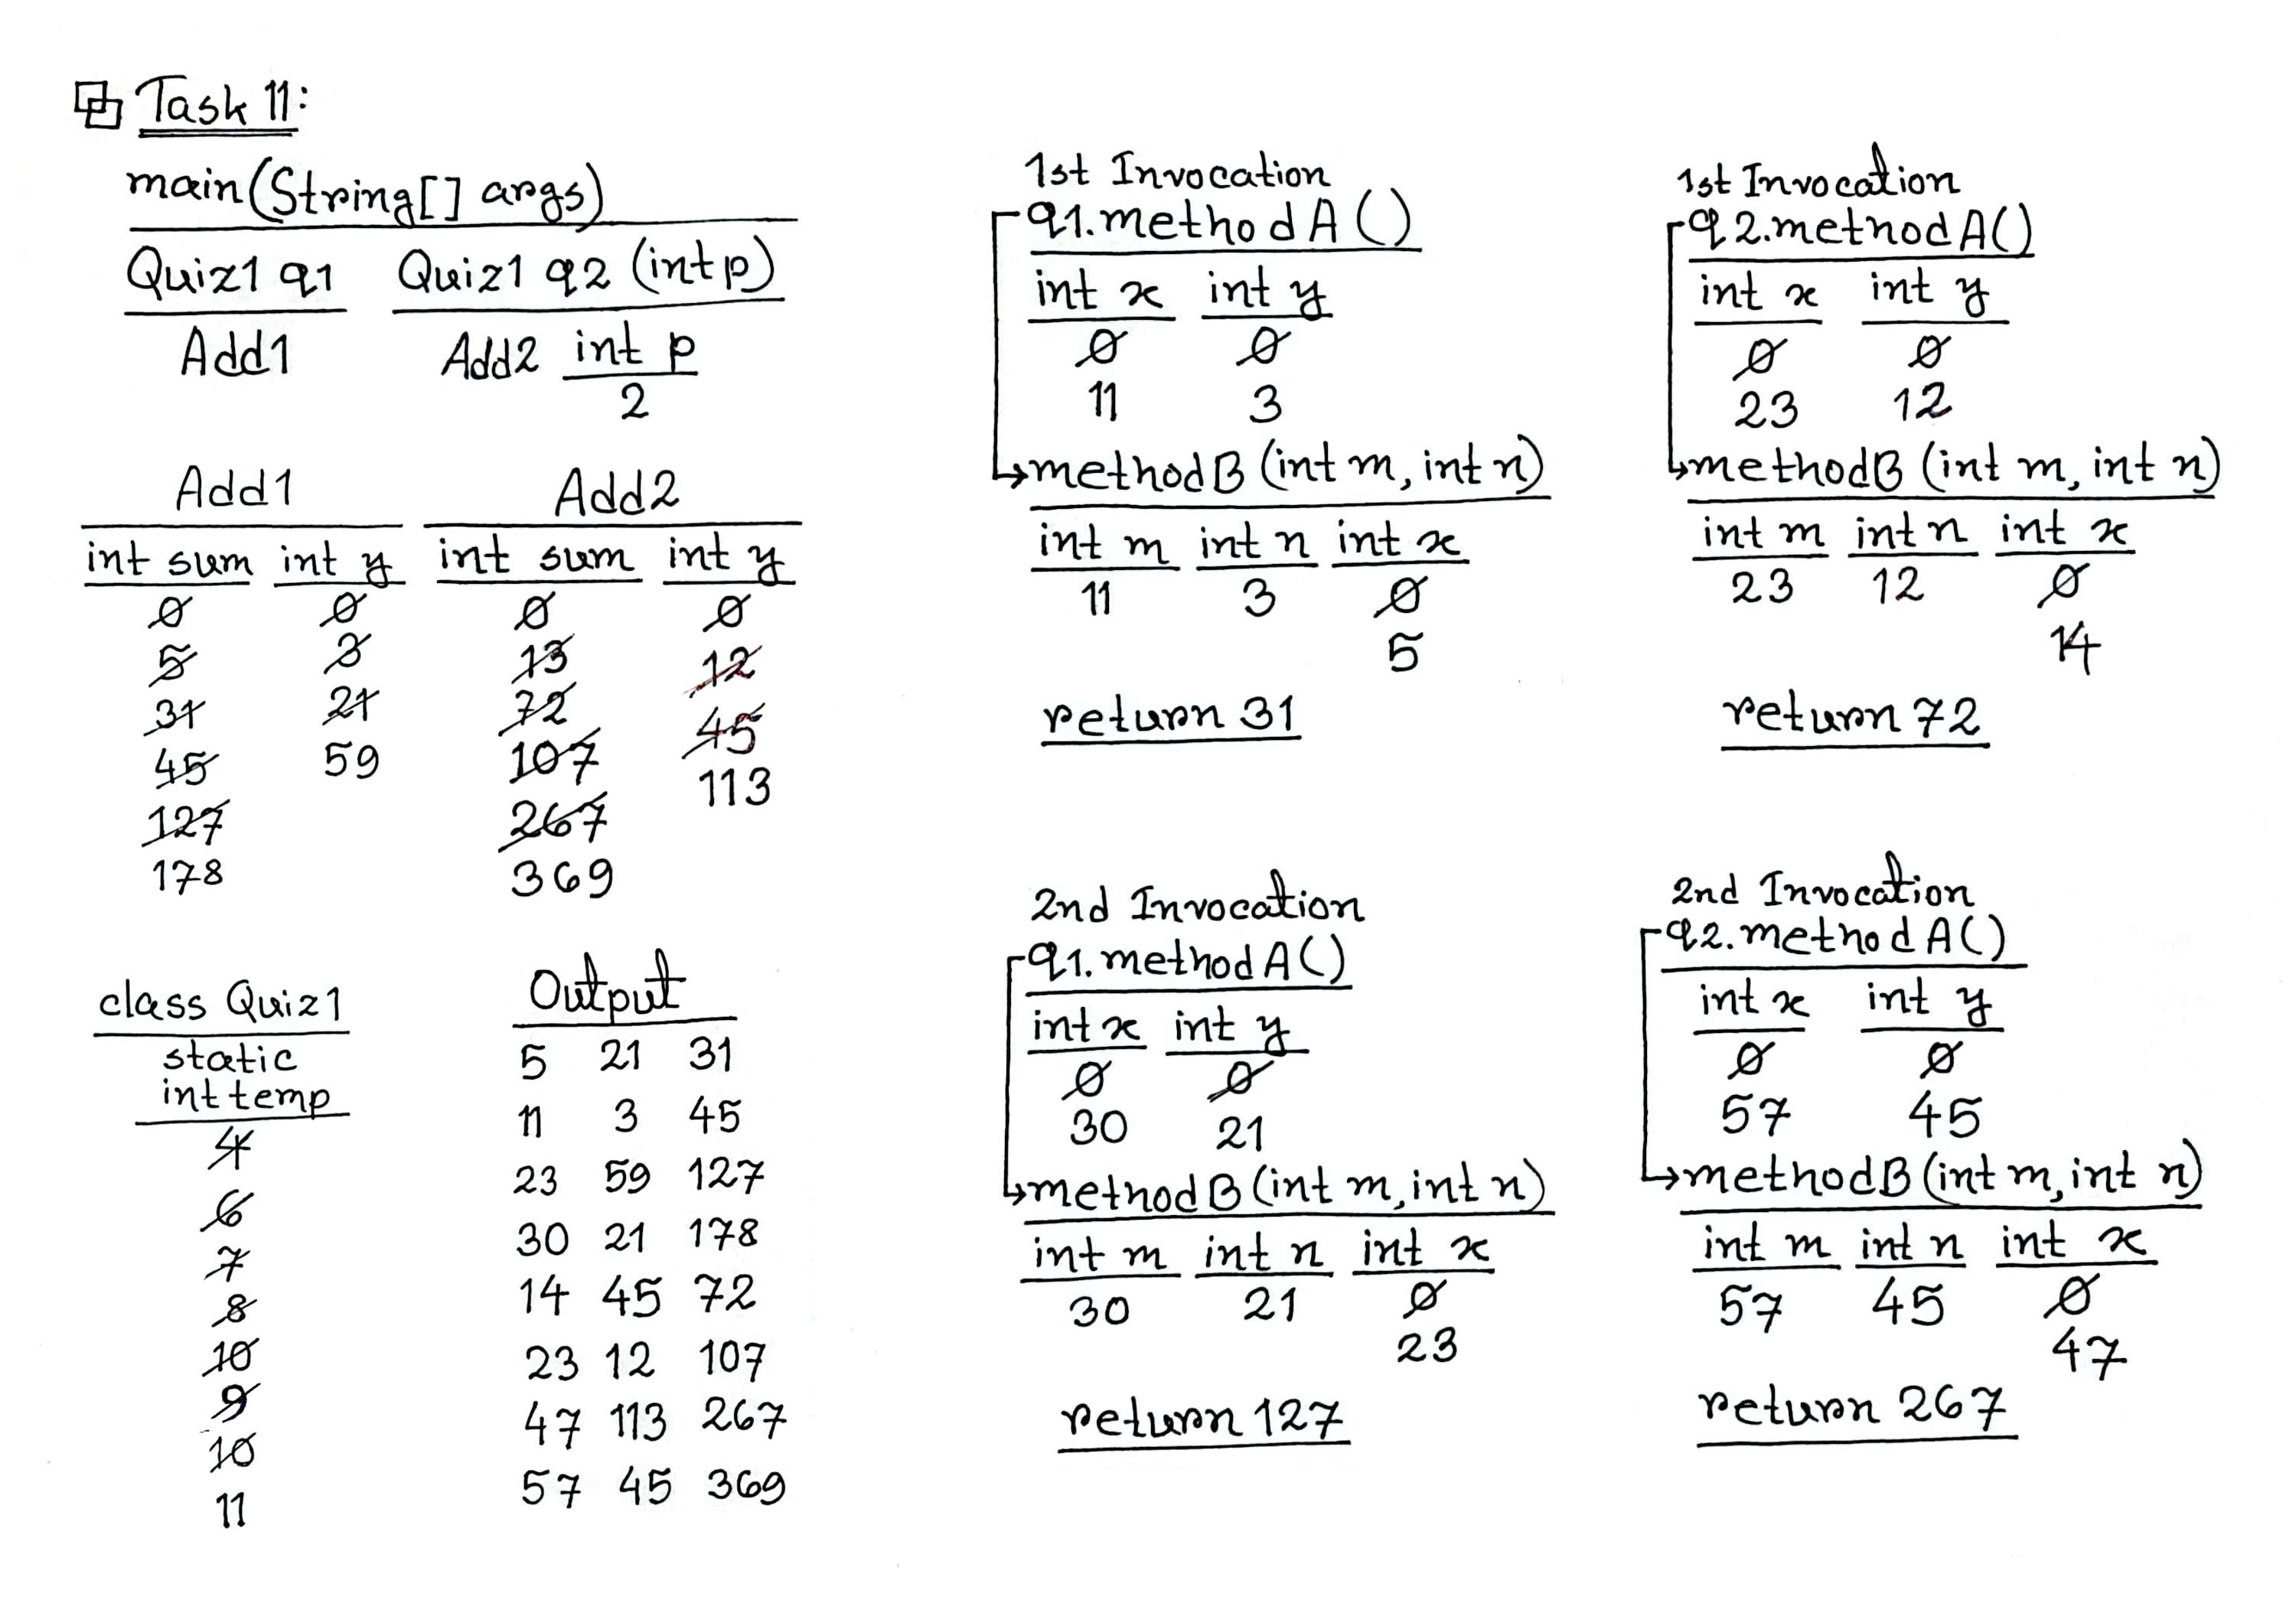 Task 11:
main(String[] args)
Quiz1 q1 Quiz1 q2 (int p)
Add1 Add2 int p
2
Add1 Add2
int sum int y int sum int y
0 0 0 0
5 3 13 12
31 21 72 45
45 59 107 113
127 267
178 369
class Quiz1
static
int temp
4
6
7
8
10
9
10
11
Output
5 21 31
11 3 45
23 59 127
30 21 178
14 45 72
23 12 107
47 113 267
57 45 369
1st Invocation
q1.methodA()
int x int y
0 0
11 3
methodB (int m, int n)
int m int n int x
11 3 0
5
return 31
2nd Invocation
q1.methodA()
int x int y
0 0
30 21
methodB (int m, int n)
int m int n int x
30 21 0
23
return 127
1st Invocation
q2.methodA()
int x int y
0 0
23 12
methodB (int m, int n)
int m int n int x
23 12 0
14
return 72
2nd Invocation
q2.methodA()
int x int y
0 0
57 45
methodB (int m, int n)
int m int n int x
57 45 0
47
return 267